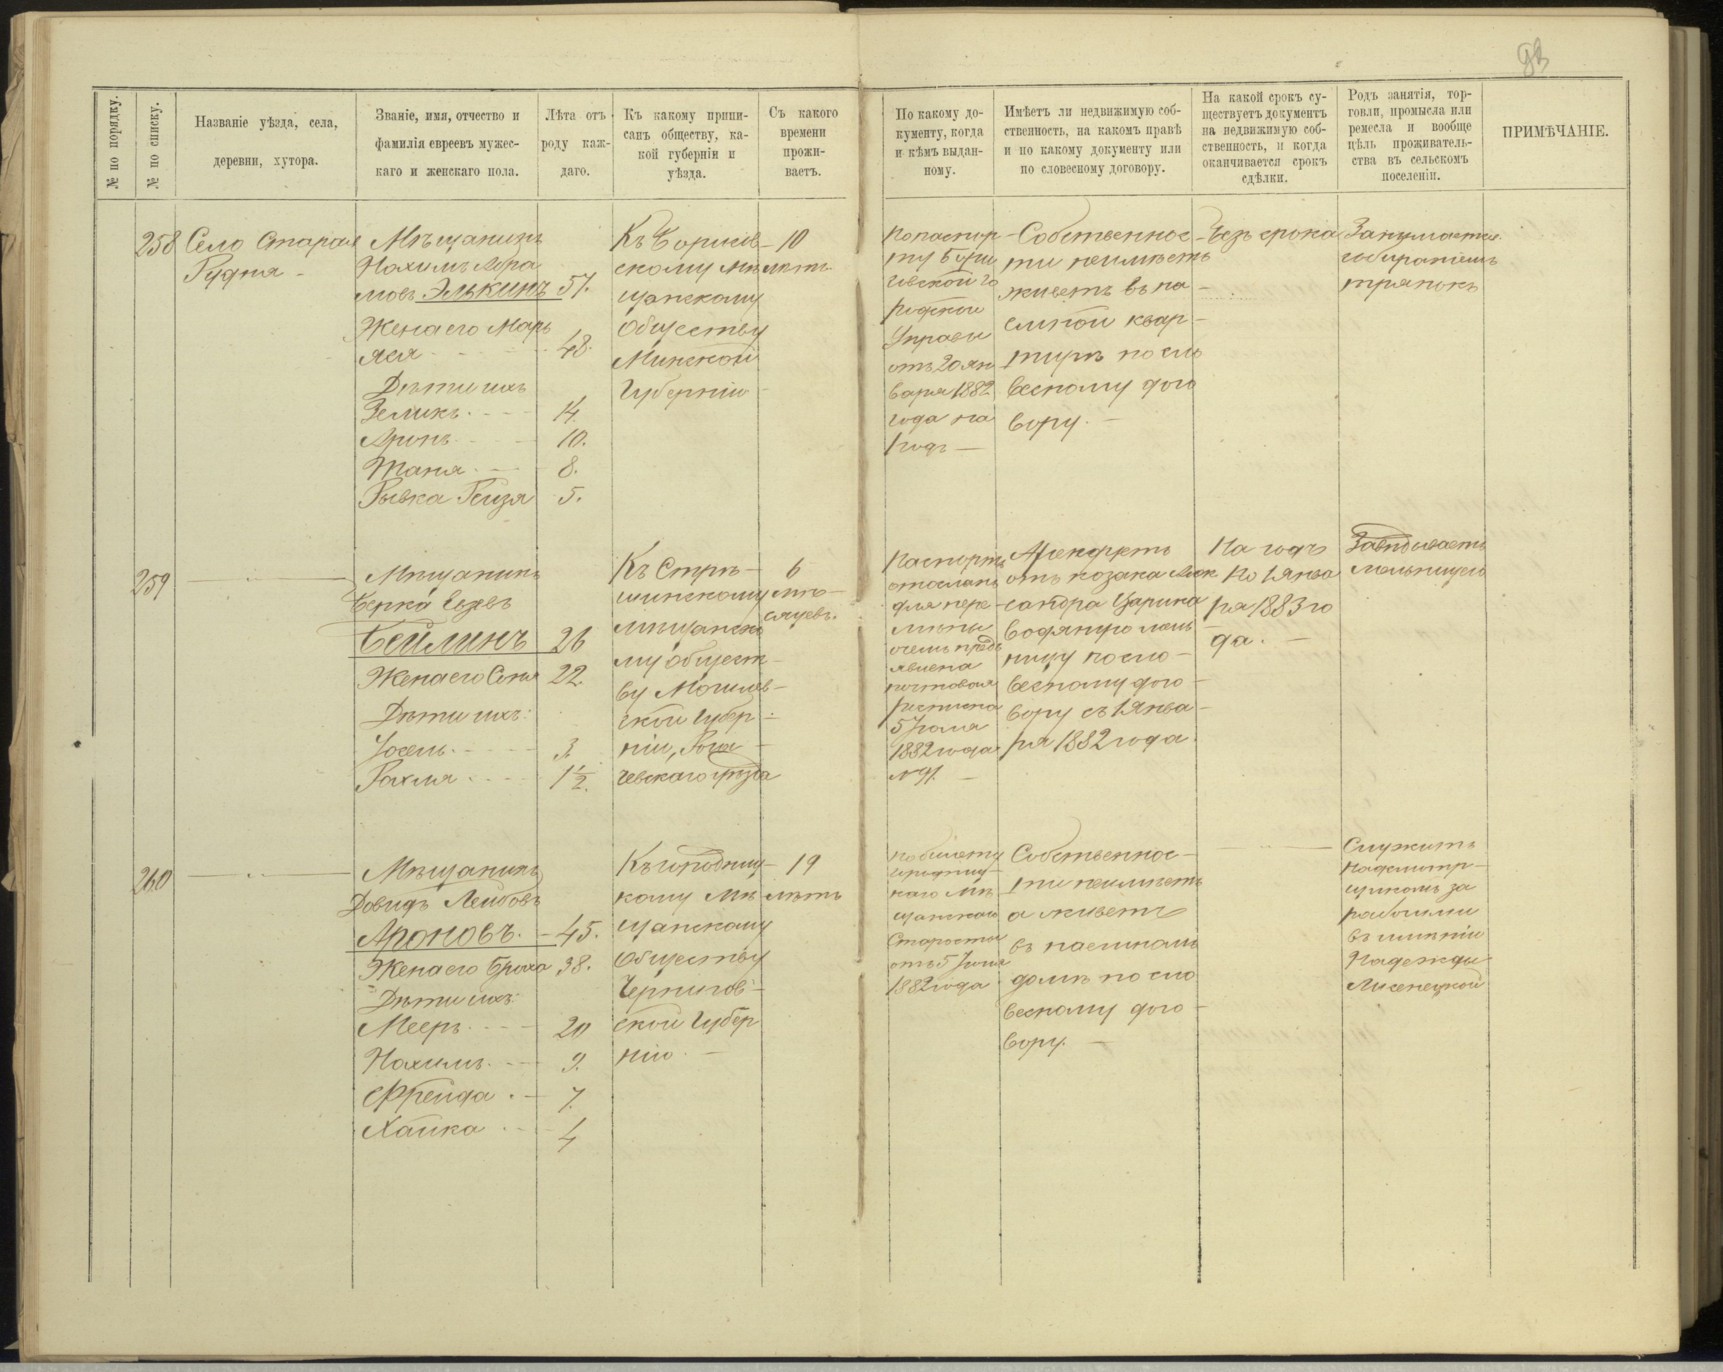 93
№ по порядку.
№ по списку.
Названіе уѣзда, села,
деревни, хутора.
Званіе, имя, отчество и
фамилія евреевъ мужес-
каго и женскаго пола.
Лѣта отъ
роду каж-
даго.
Къ какому припи-
санъ обществу, ка-
кой губерніи и
уѣзда.
Съ какого
времени
прожи-
ваетъ.
По какому до-
кументу, когда
и кѣмъ выдан-
ному.
Имѣетъ ли недвижимую соб-
ственность, на какомъ правѣ
и по какому документу или
по словесному договору.
На какой срокъ су-
ществуетъ документъ
на недвижимую соб-
ственность, и когда
оканчивается срокъ
сдѣлки.
Родъ занятія, тор-
говли, промысла или
ремесла и вообще
цѣль проживатель-
ства въ сельскомъ
поселеніи.
ПРИМѢЧАНІЕ.
258
Село Старая
Рудня -
Мѣщанинъ
Нохимъ Абра
мовъ Элькинъ 57.
Жена его Марь
яся 48.
Дѣти ихъ
Зеликъ 14
Аронъ 10.
Таня 8.
Рывка Рейзя 5.
Къ Борисов-
скому мѣ
щанскому
Обществу
Минской
Губерніи
10
лѣтъ
По паспор
ту Бори
совской Го
родской
Управы
отъ 20 ян
варя 1882
года на
1 годъ
Собственнос-
ти неимѣетъ
живетъ въ на
емной квар-
тирѣ по сло
весному дого
вору.
Безъ срока
Занимается
собираніемъ
тряпокъ
259
Мѣщанинъ
Берка
Бейлинъ 26
Жена его Соня 22.
Дѣти ихъ:
Іосель 3
Рохля 1 1/2.
Къ Стрѣ-
шинскому
мѣщанско
му общест-
ву Могилев-
ской Губер-
ніи, Рога-
чевскаго уѣзда
6
мѣ-
сяцевъ.
Паспортъ
отосланъ
для пере-
мѣны
о чемъ предъ
явлена
почтовая
росписка
5 Іюля
1882 года
№ 91.
Арендуетъ
отъ козака Алек
сандра Царика
водяную мель
ницу по сло-
весному дого-
вору съ 1 Янва-
ря 1882 года.
На годъ
по 1 Янва
ря 1883 го
да.
Завѣдываетъ
мельницею
260
Мѣщанинъ
Довидъ Лейбовъ
Ароновъ 45.
Жена его Броха 38.
Дѣти ихъ:
Мееръ 20
Нохимъ 9.
Фрейда 7.
Хайка 4
Къ городниц-
кому Мѣ
щанскому
Обществу
Чернигов-
ской Губер
ніи
19
лѣтъ
по билету
городниц-
каго Мѣ
щанскаго
Старосты
отъ 5 Іюня
1882 года
Собственнос-
ти неимѣетъ
а живетъ
въ наемномъ
домѣ по сло
весному дого-
вору.
Служитъ
надсмотр-
щикомъ за
рабочими
въ имѣніи
Надежды
Лисенецкой